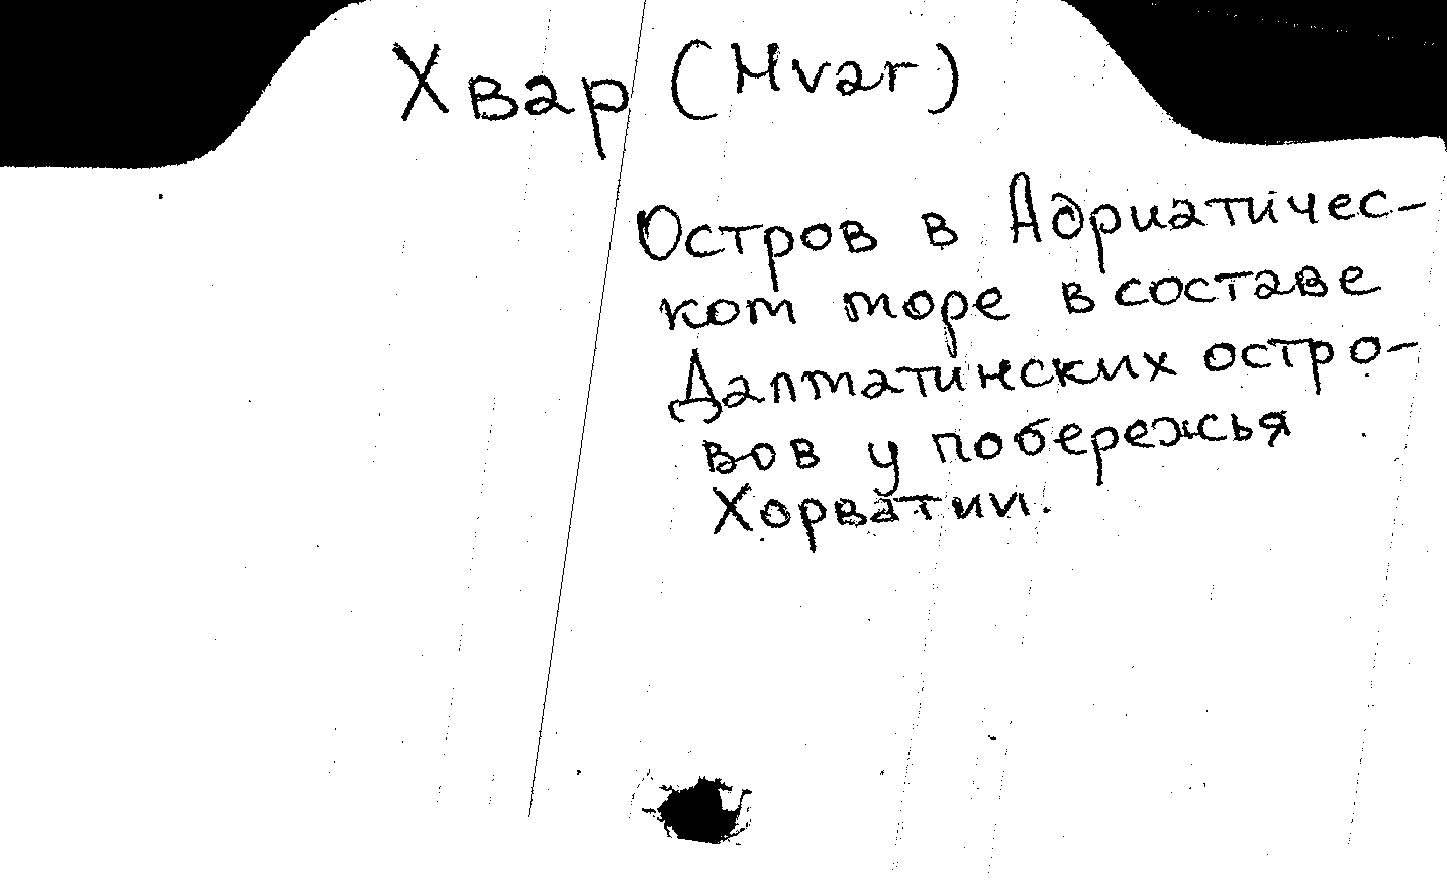 Хвар (Hvar)
Остров в Адриатичес-
ком море в составе
Далматинских остро-
вов у побережья
Хорватии.